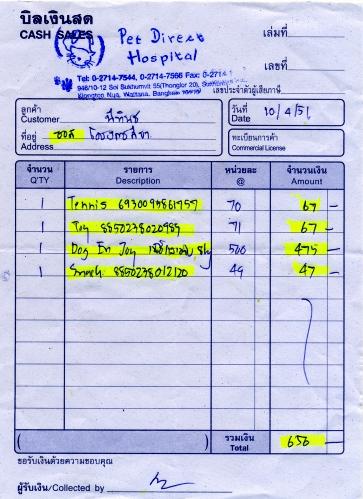 บิลเงินสด
CASH SALES
Pet Direct
Hospital
เล่มที่
เลขที่
Tel: 0-2714-7544, 0-2714-7566 Fax: 0-2714
946/10-12 Soi Sukhumvit 55(Thonglor 20),
Klongton Nua, Wattana, Bangkok
เลขประจำตัวผู้เสียภาษี
ลูกค้า
Customer
วันที่ 10/4/51
Date
ที่อยู่
Address
ทะเบียนการค้า
Commercial License
จำนวน รายการ หน่วยละ จำนวนเงิน
Q'TY Description @ Amount
1 Tennis 6930093861757 70 67 -
1 Toy 8850238020989 71 67 -
1 Dog En Joy 500 475 -
1 8850238012120 49 47 -
( ) รวมเงิน 656 -
Total
ขอรับเงินด้วยความขอบคุณ
ผู้รับเงิน/Collected by